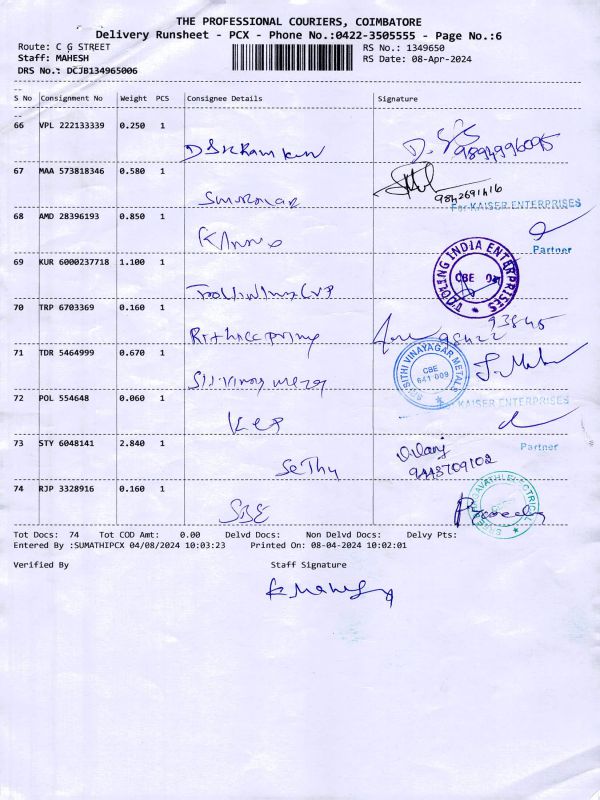 THE PROFESSIONAL COURIERS, COIMBATORE
Delivery Runsheet - PCX - Phone No.:0422-3505555 - Page No.:6
Route: C G STREET
RS No.: 1349650
Staff: MAHESH
RS Date: 08-Apr-2024
DRS No.: DCJB134965006
S No Consignment No Weight PCS Consignee Details Signature
66 VPL 222133339 0.250 1
9894996095
67 MAA 573818346 0.580 1
9842691416
For KAISER ENTERPRISES
68 AMD 28396193 0.850 1
Partner
69 KUR 6000237718 1.100 1
TOOLING INDIA ENTERPRISES
CBE
70 TRP 6703369 0.160 1
93845
98422
71 TDR 5464999 0.670 1
SRI SITHI VINAYAGAR METALS
CBE
641 009
72 POL 554648 0.060 1
KAISER ENTERPRISES
73 STY 6048141 2.840 1
Sethu
Partner
74 RJP 3328916 0.160 1
SBE
Tot Docs: 74 Tot COD Amt: 0.00 Delvd Docs: Non Delvd Docs: Delvy Pts:
Entered By :SUMATHIPCX 04/08/2024 10:03:23 Printed On: 08-04-2024 10:02:01
Verified By Staff Signature